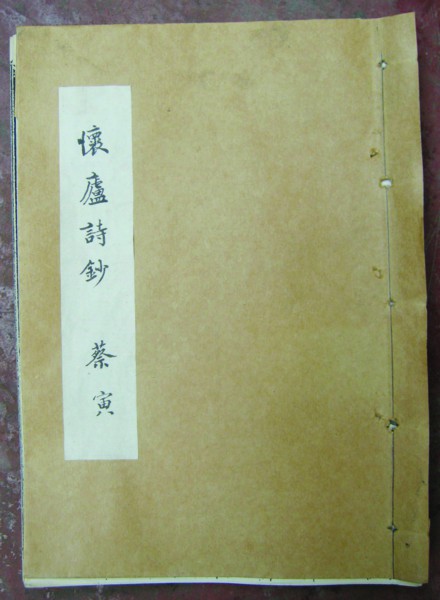 懷廬詩鈔 蔡寅